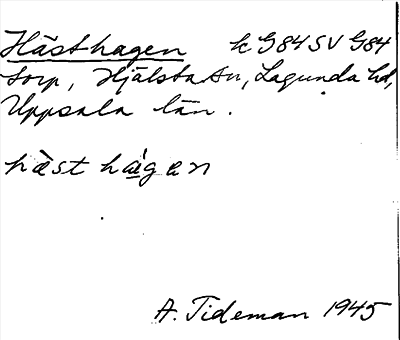 Hästhagen k G84 SV G84
torp, Hjälsta sn, Lagunda hd,
Uppsala län.
hä̀st há̤gen
A. Tideman 1945